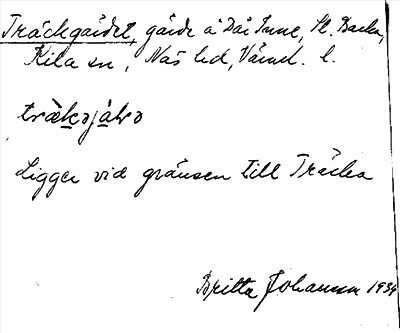 Träckgärdet, gärde å Där Inne, St. Backa,
Kila sn, Näs hd, Värml. l.
träkəjałə
Ligger vid gränsen till Träcka
Britta Johansson 1934